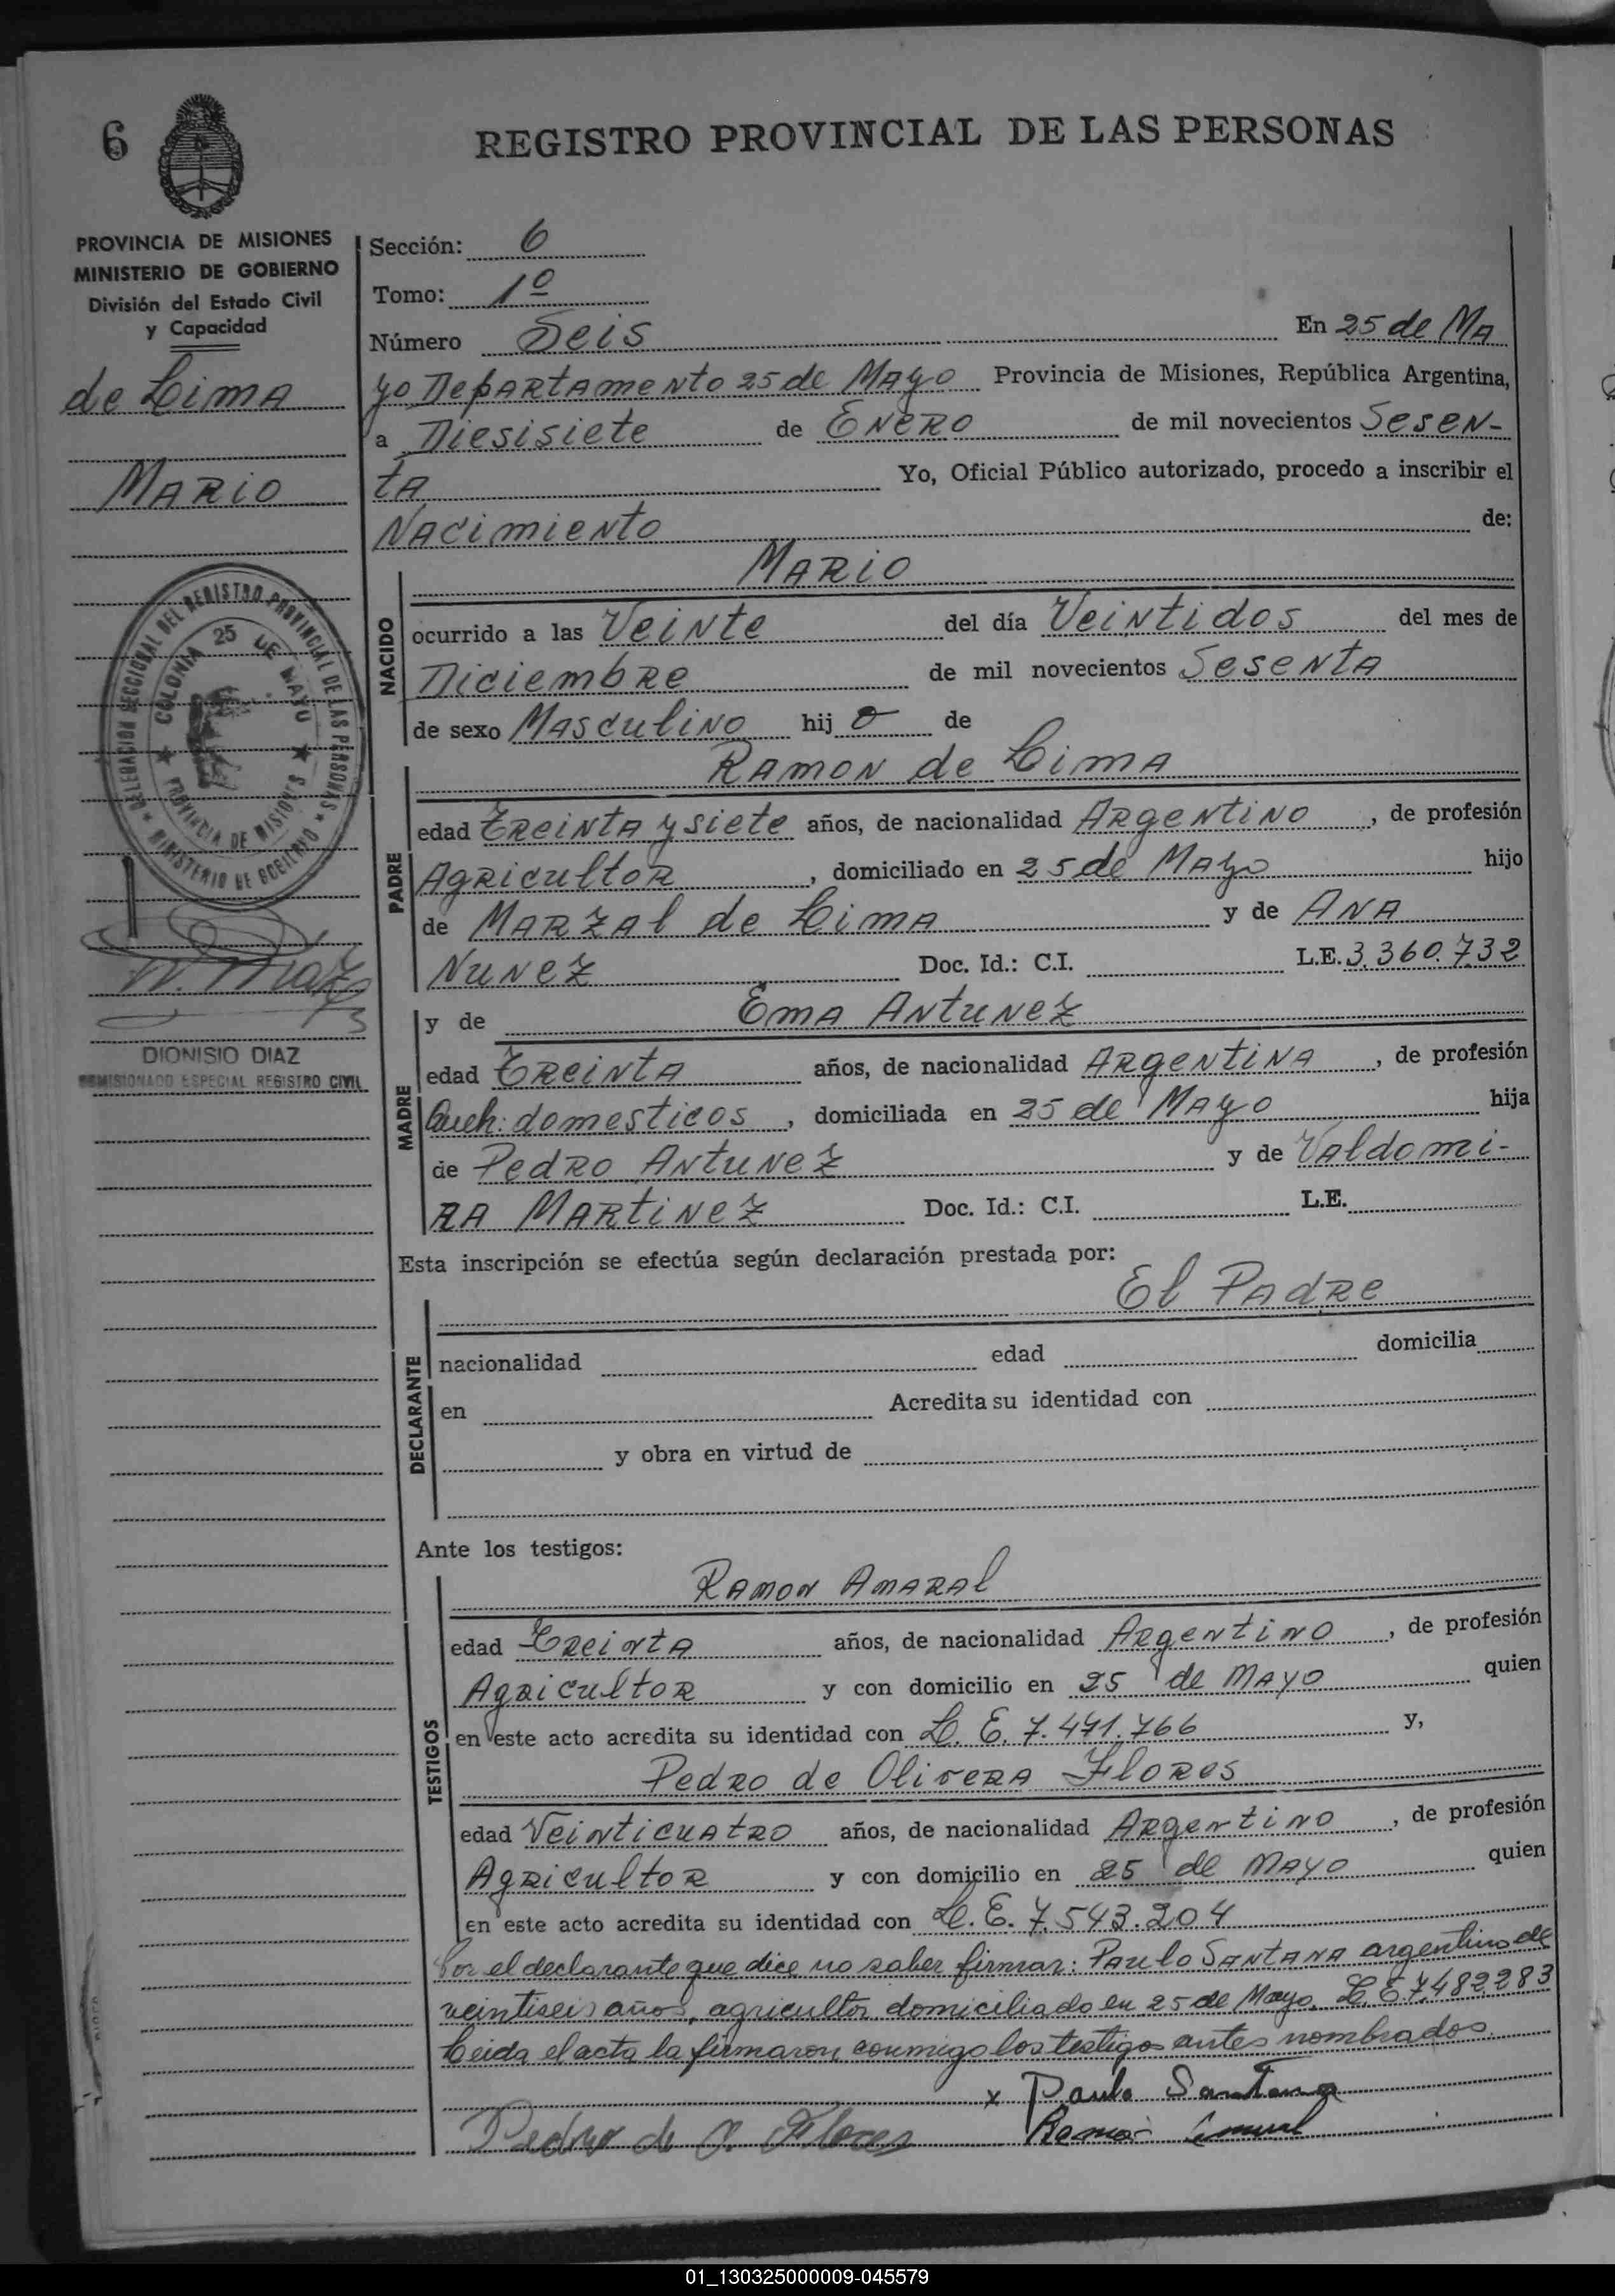 6
REGISTRO PROVINCIAL DE LAS PERSONAS
PROVINCIA DE MISIONES
MINISTERIO DE GOBIERNO
División del Estado Civil
y Capacidad
de Lima
Mario
DELEGACION SECCIONAL DEL REGISTRO PROVINCIAL DE LAS PERSONAS
MINISTERIO DE GOBIERNO
COLONIA 25 DE MAYO
PROVINCIA DE MISIONES
DIONISIO DIAZ
COMISIONADO ESPECIAL REGISTRO CIVIL
Sección: 6
Tomo: 1º
Número Seis En 25 de Ma
yo Departamento 25 de Mayo Provincia de Misiones, República Argentina,
a Diesisiete de Enero de mil novecientos Sesen-
ta Yo, Oficial Público autorizado, procedo a inscribir el
Nacimiento de:
NACIDO
Mario
ocurrido a las Veinte del día Veintidos del mes de
Diciembre de mil novecientos Sesenta
de sexo Masculino hijo de
PADRE
Ramon de Lima
edad Treinta y siete años, de nacionalidad Argentino, de profesión
Agricultor, domiciliado en 25 de Mayo hijo
de Marzal de Lima y de Ana
Nunez Doc. Id.: C.I. L.E. 3.360.732
MADRE
y de Ema Antunez
edad Treinta años, de nacionalidad Argentina, de profesión
Queh: domesticos, domiciliada en 25 de Mayo hija
de Pedro Antunez y de Valdomi-
ra Martinez Doc. Id.: C.I. L.E.
Esta inscripción se efectúa según declaración prestada por:
El Padre
DECLARANTE
nacionalidad edad domicilia
en Acredita su identidad con
y obra en virtud de
Ante los testigos:
TESTIGOS
Ramon Amaral
edad Treinta años, de nacionalidad Argentino, de profesión
Agricultor y con domicilio en 25 de Mayo quien
en este acto acredita su identidad con L. E. 7.491.766 y,
Pedro de Olivera Flores
edad Veinticuatro años, de nacionalidad Argentino, de profesión
Agricultor y con domicilio en 25 de Mayo quien
en este acto acredita su identidad con L. E. 7.543.204
Por el declarante que dice no saber firmar: Paulo Santana argentino de
veintiseis años, agricultor, domiciliado en 25 de Mayo, L. E 7.482.283
Leida el acta la firmaron conmigo los testigos antes nombrados.
x Paulo Santana
Pedro de O. Flores Ramon Amaral
01_130325000009-045579